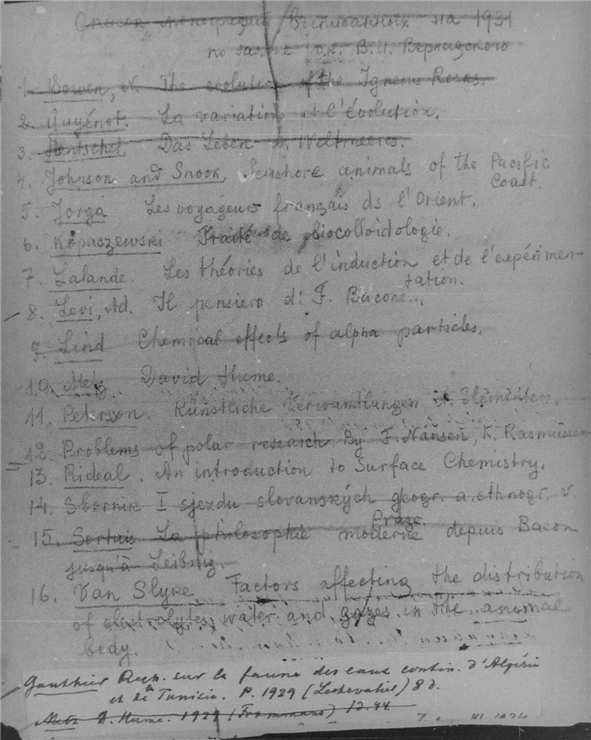 Список монографий выписанных на 1931
по заявке ак. В.И. Вернадского
1. Bowen, N. The evolution of the Igneous Rocks.
2. Guyénot. La variation et l'évolution.
3. Hentschel Das Leben d. Weltmeeres.
4. Johnson and Snook, Seashore animals of the Pacific
Coast.
5. Jorga Les voyageurs français ds l'Orient.
6. Kopaczewski Traité de biocolloidologie.
7. Lalande. Les théories de l'induction et de l'expérimen-
tation.
8. Levi, Ad. Il pensiero di F. Bacone..
9. Lind Chemical effects of alpha particles.
10. Metz. David Hume.
11. Peterson. Künstliche Verwandlungen d. Elementen.
12. Problems of polar research by F. Nansen, K. Rasmussen
13. Rideal. An introduction to Surface Chemistry.
14. Sbornik I sjezdu slovanských geogr. a. ethnogr. v.
Praze.
15. Sortais La philosophie moderne depuis Bacon
jusqu'à Leibniz.
16. Van Slyke, Factors affecting the distribution
of electrolytes, water and gazes in the animal
body.
Gauthier Rech. sur la faune des eaux contin. d'Algérie
et de la Tunisie. P. 1929 (Lechevalier) 8 d.
Metz D. Hume. 1929 (Frommann) 12.44